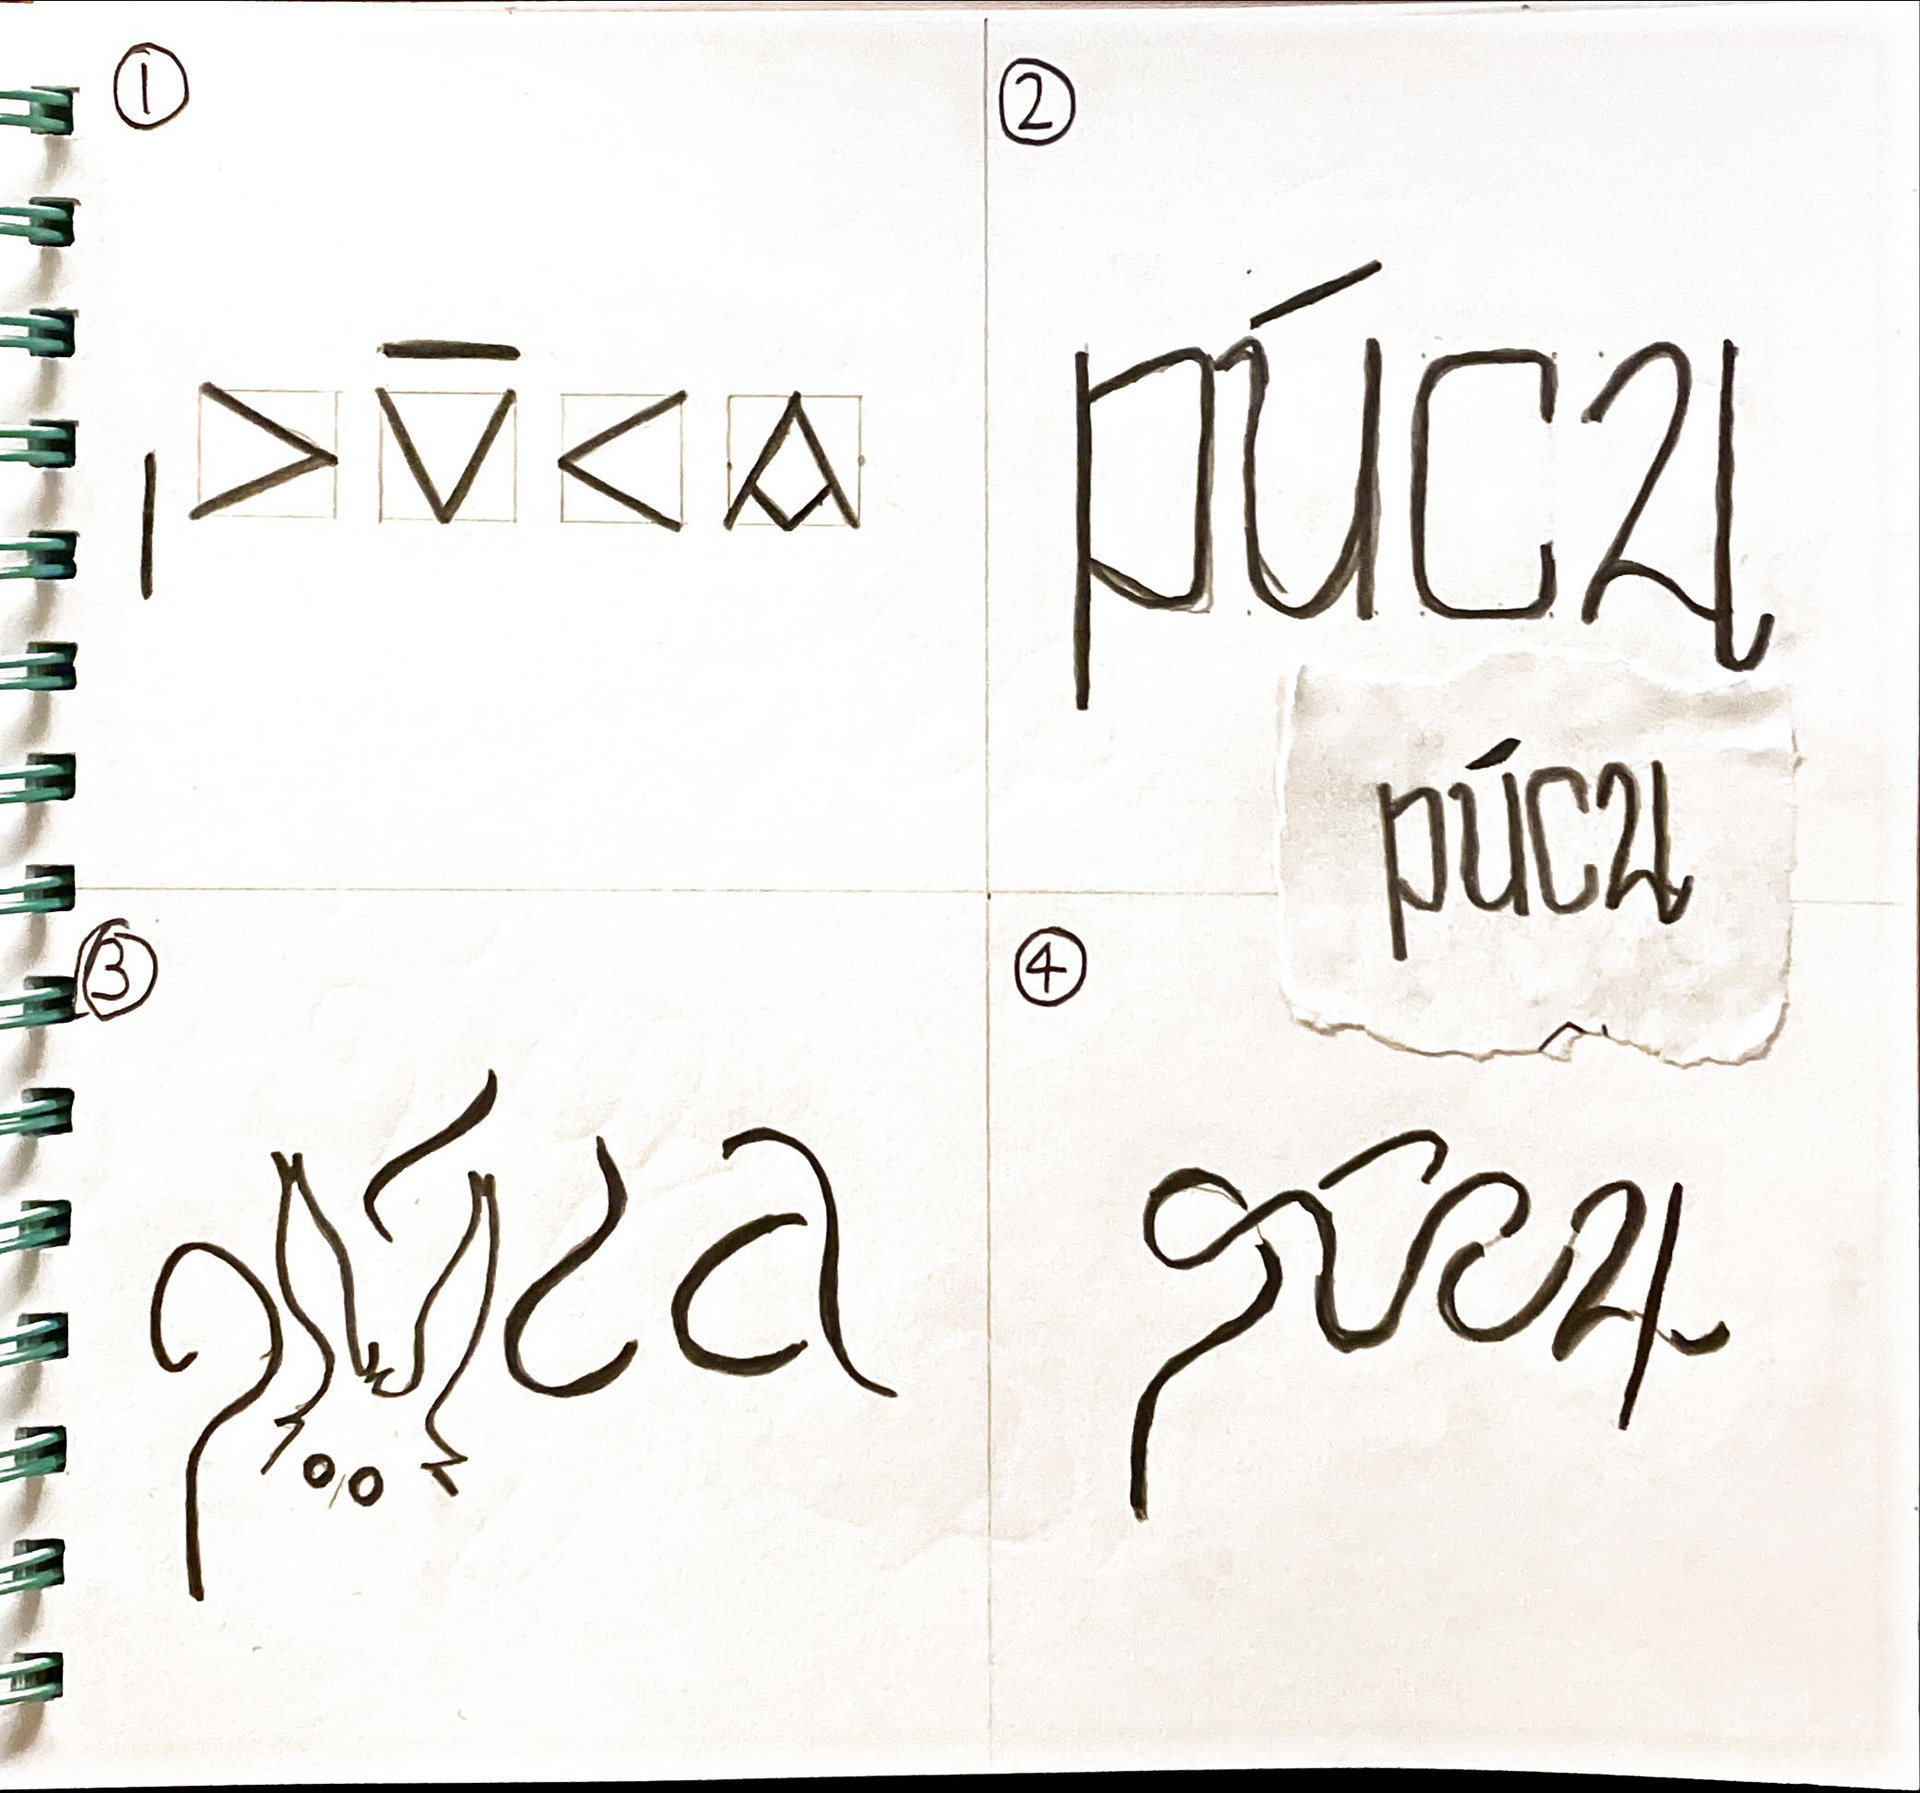 ①
púca
②
púca
púca
③
púca
④
púca